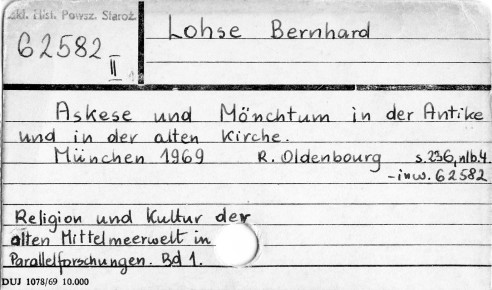 Zkł. Hist. Powsz. Staroż.
62582
II
Lohse Bernhard
Askese und Mönchtum in der Antike
und in der alten Kirche.
München 1969 R. Oldenbourg s.236, nlb.4
-inw. 62582
Religion und Kultur der
alten Mittelmeerwelt in
Parallelforschungen. Bd 1.
DUJ 1078/69 10.000